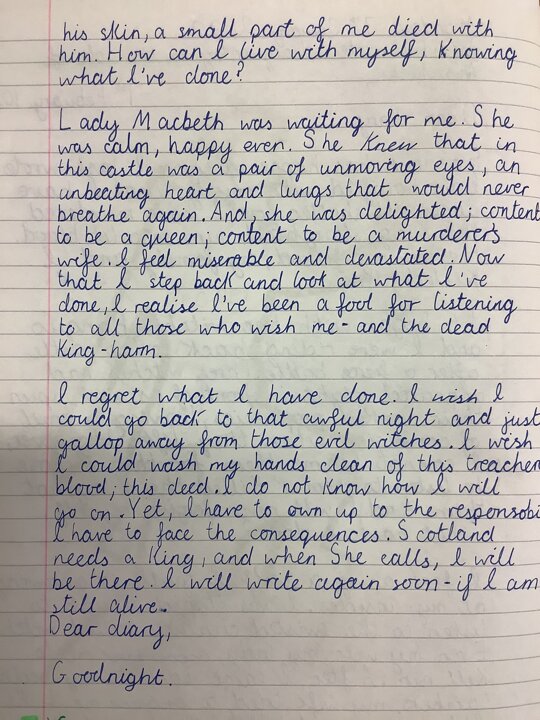 his skin, a small part of me died with
him. How can I live with myself, knowing
what I've done?
Lady Macbeth was waiting for me. She
was calm, happy even. She knew that in
this castle was a pair of unmoving eyes, an
unbeating heart and lungs that would never
breathe again. And, she was delighted; content
to be a queen; content to be a murderer's
wife. I feel miserable and devastated. Now
that I step back and look at what I've
done, I realise I've been a fool for listening
to all those who wish me - and the dead
King - harm.
I regret what I have done. I wish I
could go back to that awful night and just
gallop away from those evil witches. I wish
I could wash my hands clean of this treacher
blood; this deed. I do not know how I will
go on. Yet, I have to own up to the responsobi
I have to face the consequences. Scotland
needs a King, and when She calls, I will
be there. I will write again soon - if I am
still alive.
Dear diary,
Goodnight.